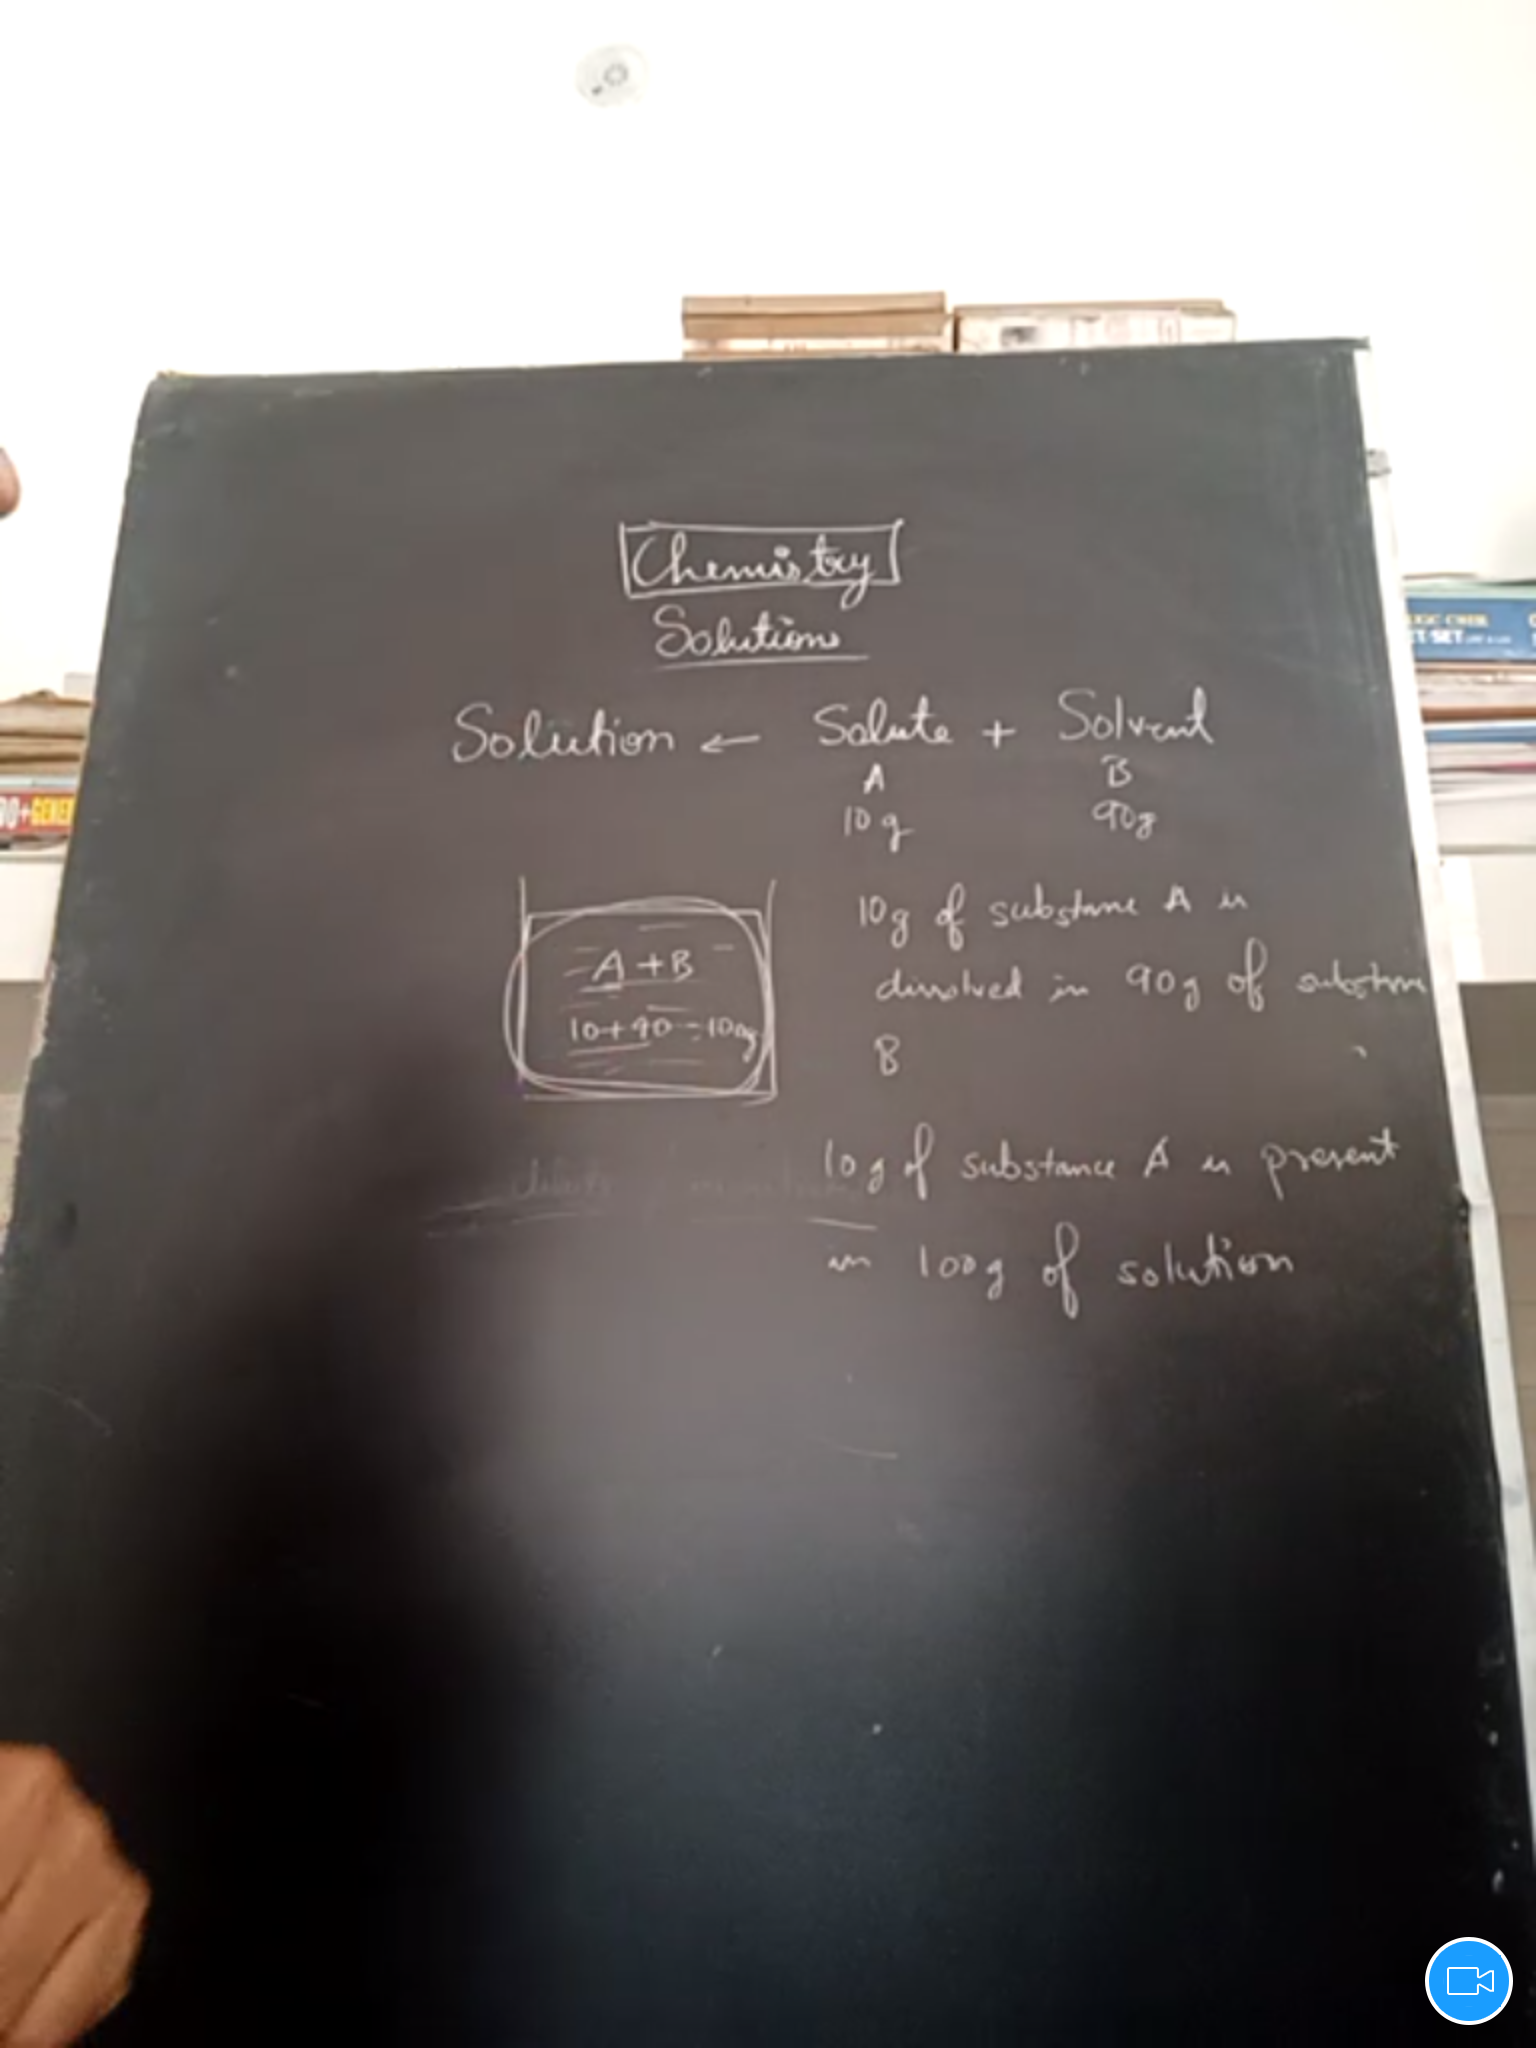 Chemistry
Solutions
Solution ← Solute + Solvent
A B
10 g 90g
10g of substance A is
dissolved in 90g of substance
B
A + B
10+90 = 100g
10 g of substance A is present
in 100g of solution
ET-SET